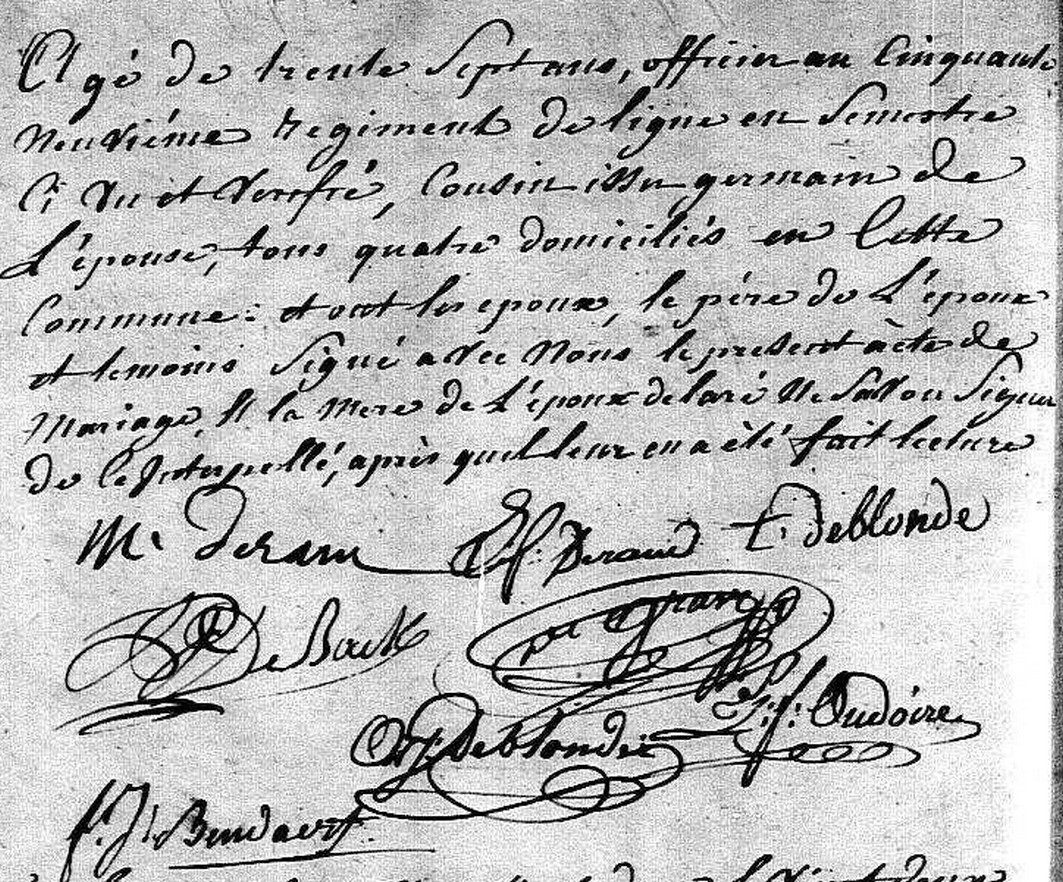 Agé de trente Sept ans, officier au Cinquante
neuvième regiment de ligne en Semestre
Ci Vu et Verifié, Cousin issu germain de
L'épouse, tous quatre domiciliés en Cette
Commune: et ont les epoux, le père de L'époux
et temoins Signé avec Nous le present acte de
Mariage, et la Mere de L'époux delaré Ne Savoir Signer
de ce Interpellé, après quil leur en a été fait lecture
M. Deram f. Deram t. deblonde
De Back
Deblonde f. Oudoire
f. J.